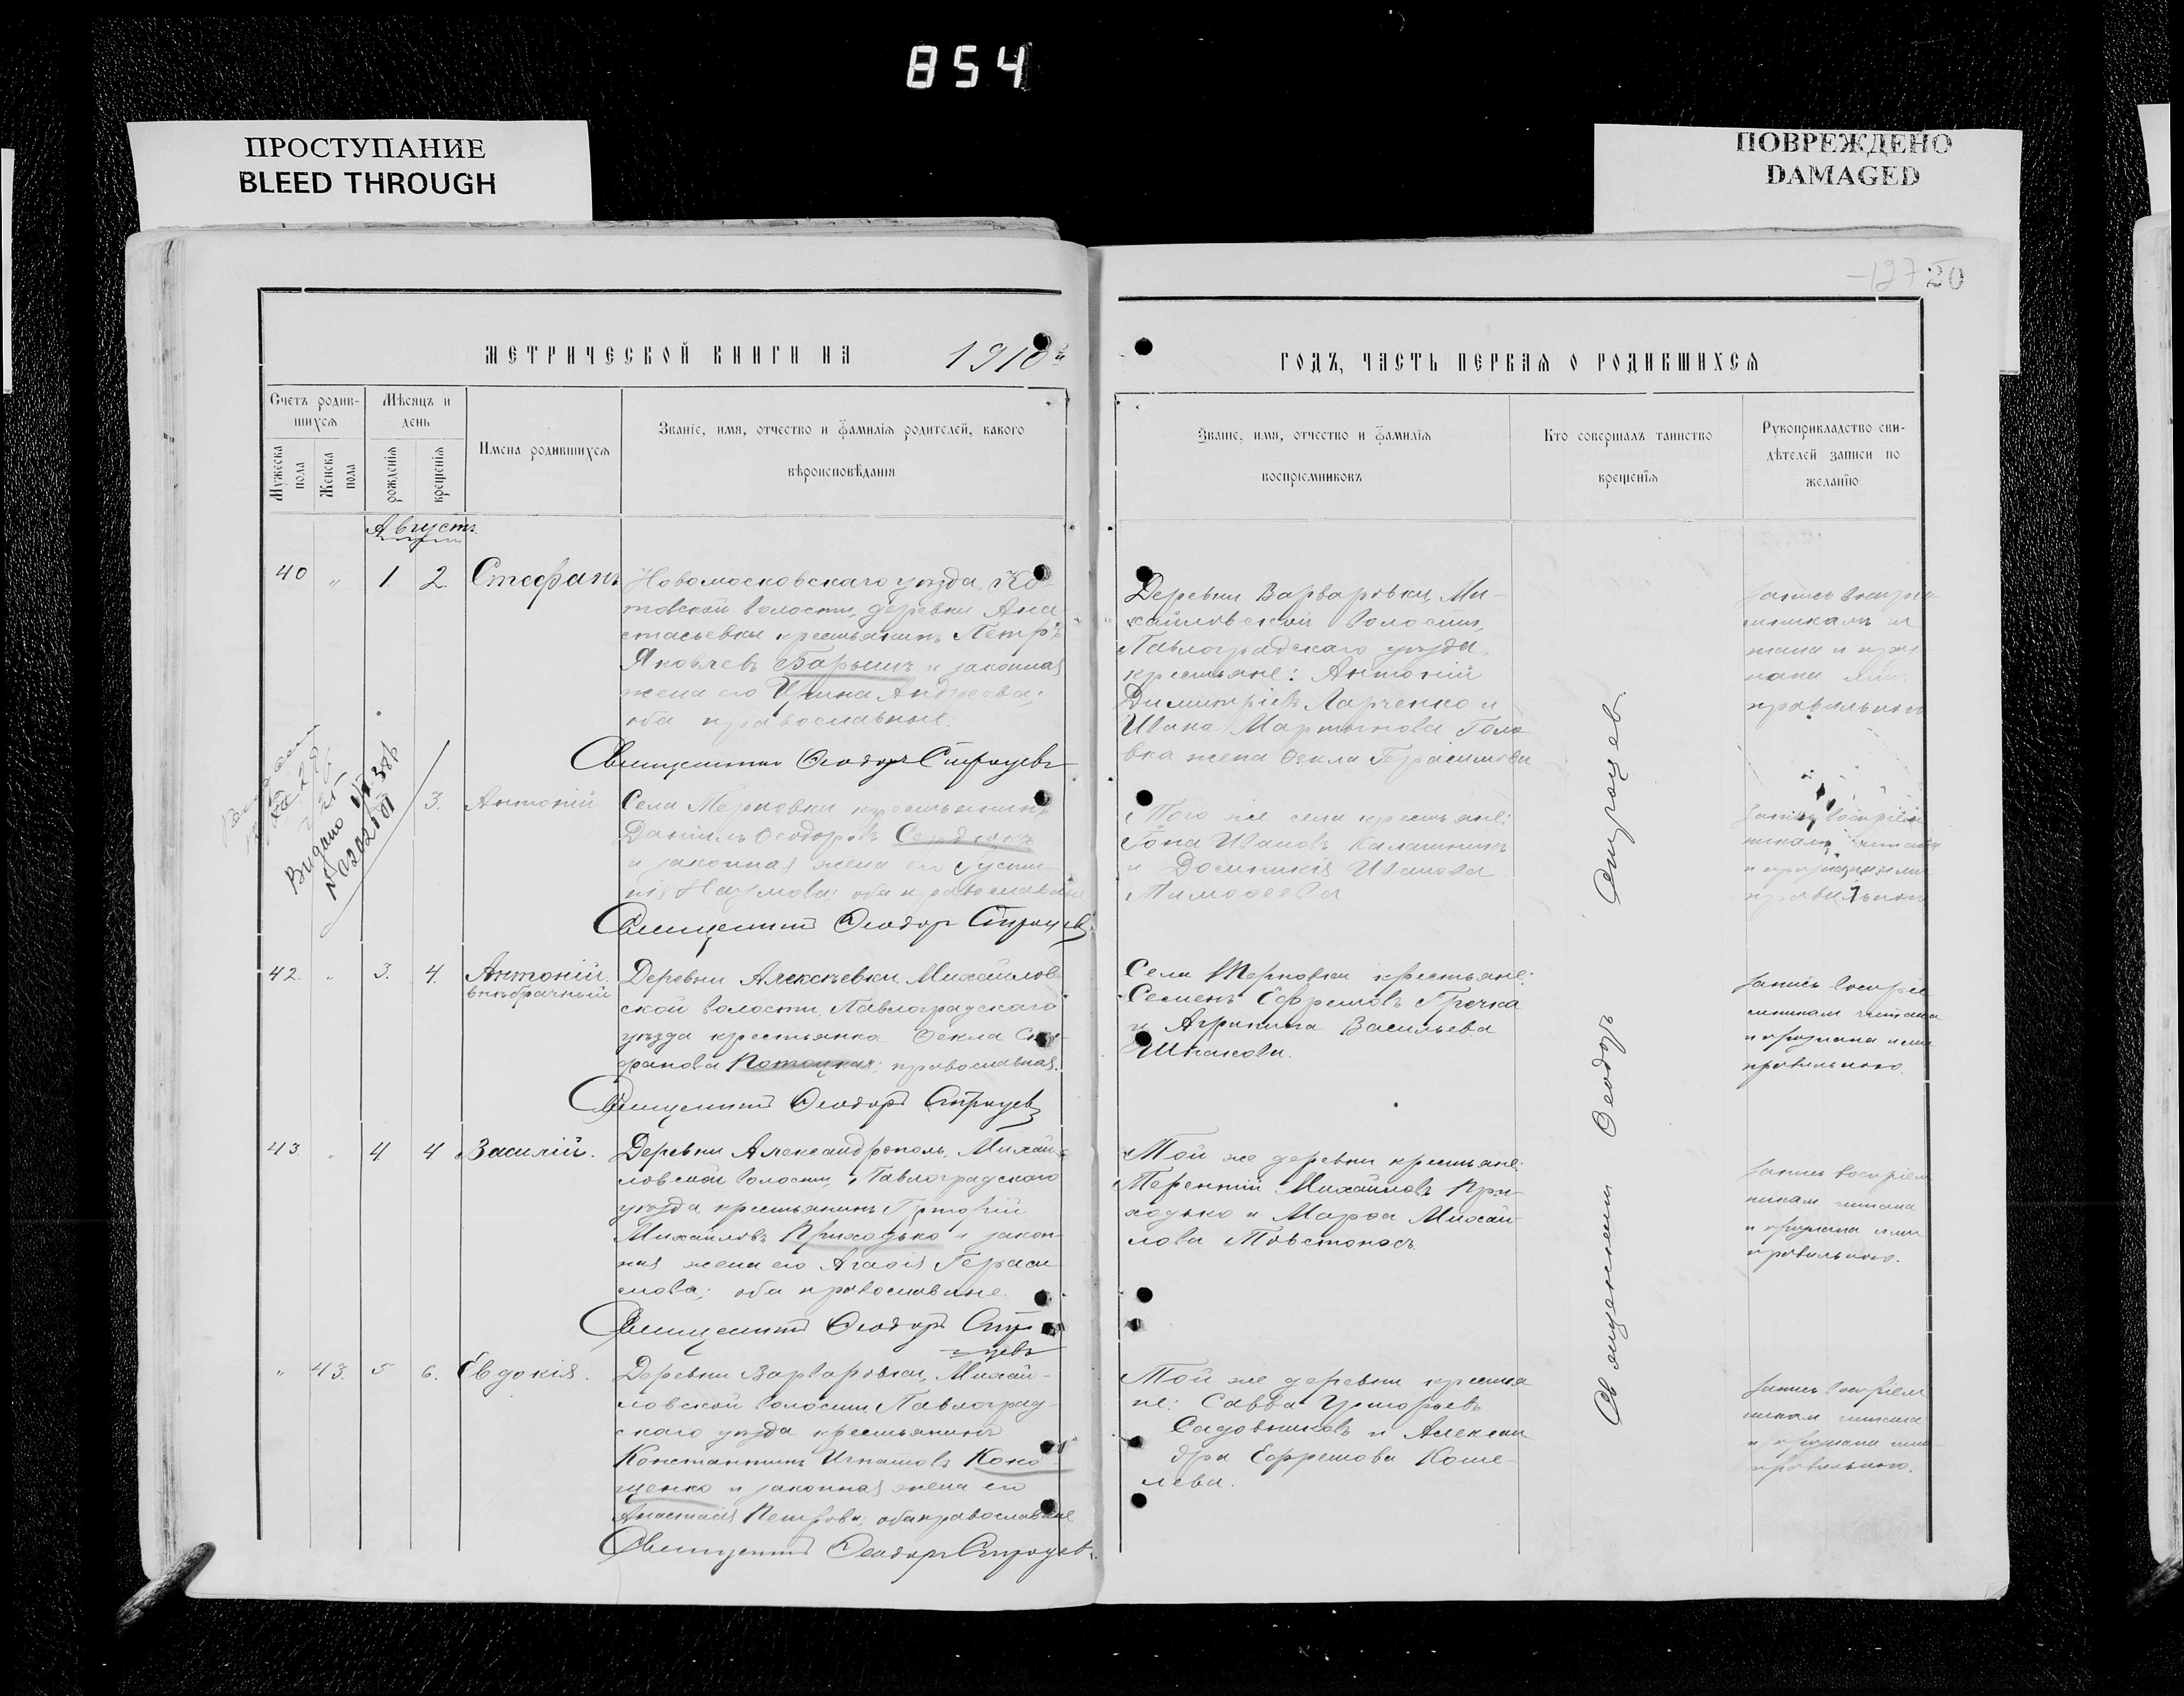 854
ПРОСТУПАНИЕ
BLEED THROUGH
ПОВРЕЖДЕНО
DAMAGED
127 20
МЕТРИЧЕСКОЙ КНИГИ НА 1910й
ГОДЪ, ЧАСТЬ ПЕРВАЯ О РОДИВШИХСЯ
Счетъ родив-
шихся
Мѣсяцъ и
день
Мужеска
пола
Женска
пола
рожденія
крещенія
Имена родившихся
Званіе, имя, отчество и фамилія родителей, какого
вѣроисповѣданія
Званіе, имя, отчество и фамилія
воспріемниковъ
Кто совершалъ таинство
крещенія
Рукоприкладство сви-
дѣтелей записи по
желанію
Августъ.
40 " 1 2. Стефанъ
Новомосковскаго уѣзда, Ко-
товской волости, деревни Ана
стасьевки крестьянинъ Петръ
Яковлевъ и законная
жена его Ирина Андреева;
оба православные.
Священникъ Ѳеодоръ Строцев
Деревни Варваровки, Ми-
хайловской волости,
Павлоградскаго уѣзда
крестьяне: Антоній
Димитріевъ Ларченко и
Ивана Мартынова Голо
вка жена Ѳекла Герасимова
Запись воспріе
мникамъ чи
тана и приз
нана ими
правильною
Видано
3. Антоній
Села Терновки крестьянинъ
Даніилъ Ѳеодоровъ Сердюкъ
и законная жена его Іусти
нія Наумова; оба православные
Священникъ Ѳеодоръ Строцев
Того же села крестьяне:
Іона Ивановъ Калашникъ
и Домникія Иванова
Тимоѳеева
Запись воспріем
никамъ читана
и признана ими
правильною
42. " 3. 4. Антоній.
внѣбрачный
Деревни Алексѣевки, Михайлов
ской волости, Павлоградскаго
уѣзда крестьянка Ѳекла Сте
фанова Потоцкая; православная.
Священникъ Ѳеодоръ Строцев
Села Терновки крестьяне:
Семенъ Ефремовъ Гречка
и Агрипина Васильева
Шпакова.
Запись воспріе
мникам читана
и признана ими
правильною.
43. " 4 4 Василій.
Деревни Александрополь, Михай-
ловской волости, Павлоградскаго
уѣзда крестьянинъ Григорій
Михайловъ Приходько и закон-
ная жена его Агаѳія Гераси
мова; оба православные.
Священникъ Ѳеодоръ Стро
цевъ
Той же деревни крестьяне:
Терентій Михайловъ При-
ходько и Марѳа Михай
лова Товстоносъ.
Запись воспріем
никам читана
и признана ими
правильною.
" 43. 5 6. Евдокія.
Деревни Варваровки, Михай-
ловской волости Павлоград-
скаго уѣзда крестьянинъ
Константинъ Игнатовъ Коно
щенко и законная жена его
Анастасія Петрова; оба православные
Священникъ Ѳеодоръ Строцев.
Той же деревни крестья
не: Савва Григорьевъ
Садовниковъ и Алексан
дра Ефремова Коше-
лева.
Запись воспріем
никам читана
и признана ими
правильною.
Священникъ Ѳеодоръ Строцев.